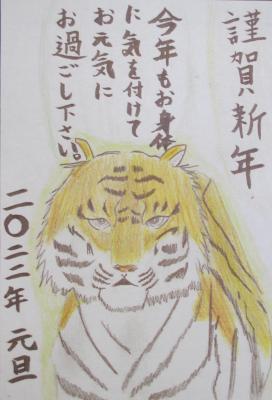 謹賀新年
今年もお身体
に気を付けて
お元気に
お過ごし下さい。
二〇二二年 元旦